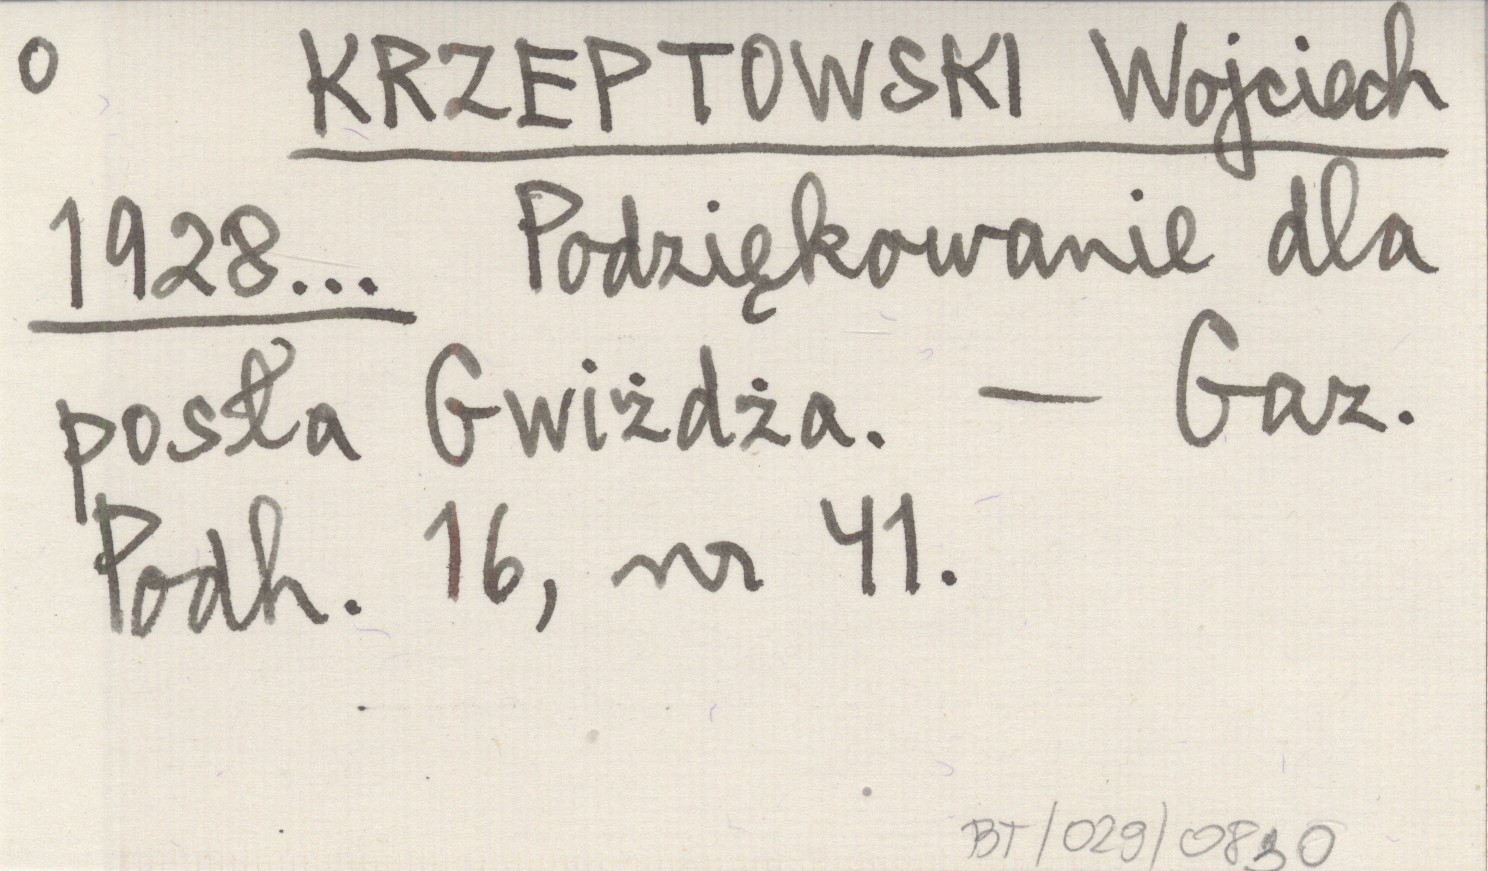 O KRZEPTOWSKI Wojciech
1928... Podziękowanie dla
posła Gwiżdża. — Gaz.
Podh. 16, nr 41.
BT/029/0830